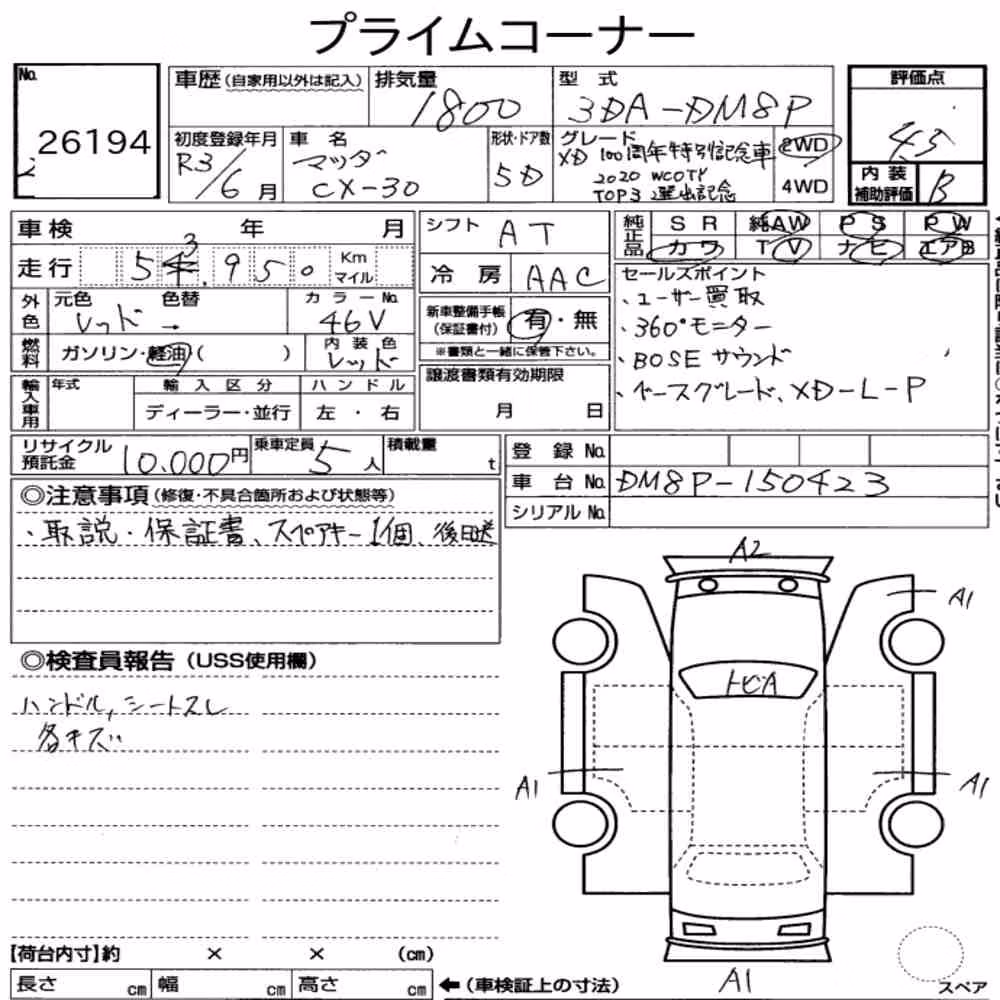 プライムコーナー
No. 26194
車歴(自家用以外は記入)
排気量 1800
型式 3DA-DM8P
評価点 4.5
初度登録年月 R3/6月
車名 マツダ CX-30
形状・ドア数 5D
グレード XD 100周年特別記念車
2020 WCOTY
TOP3 選出記念
2WD
4WD
内装補助評価 B
車検 年 月
シフト AT
純正品 SR 純AW PS PW
カワ TV ナビ エアB
走行 54.950 3 Km マイル
冷房 AAC
セールスポイント
・ユーザー買取
・360°モニター
・BOSEサウンド
・ベースグレード、XD-L-P
外色 元色 レッド→ 色替 カラーNo. 46V
新車整備手帳(保証書付) 有・無
※書類と一緒に保管下さい。
燃料 ガソリン・軽油・( ) 内装色 レッド
譲渡書類有効期限
月 日
輸入車用 年式 輸入区分 ハンドル
ディーラー・並行 左・右
リサイクル預託金 10.000円 乗車定員 5人 積載量 t
登録No.
車台No. DM8P-150423
シリアルNo.
◎注意事項(修復・不具合箇所および状態等)
・取説・保証書、スペアキー1個、後日送
◎検査員報告(USS使用欄)
ハンドル,シートスレ
各キズ
A2
A1
トビA
A1
A1
A1
【荷台内寸】約 × × (cm)
長さ cm 幅 cm 高さ cm ←(車検証上の寸法)
スペア